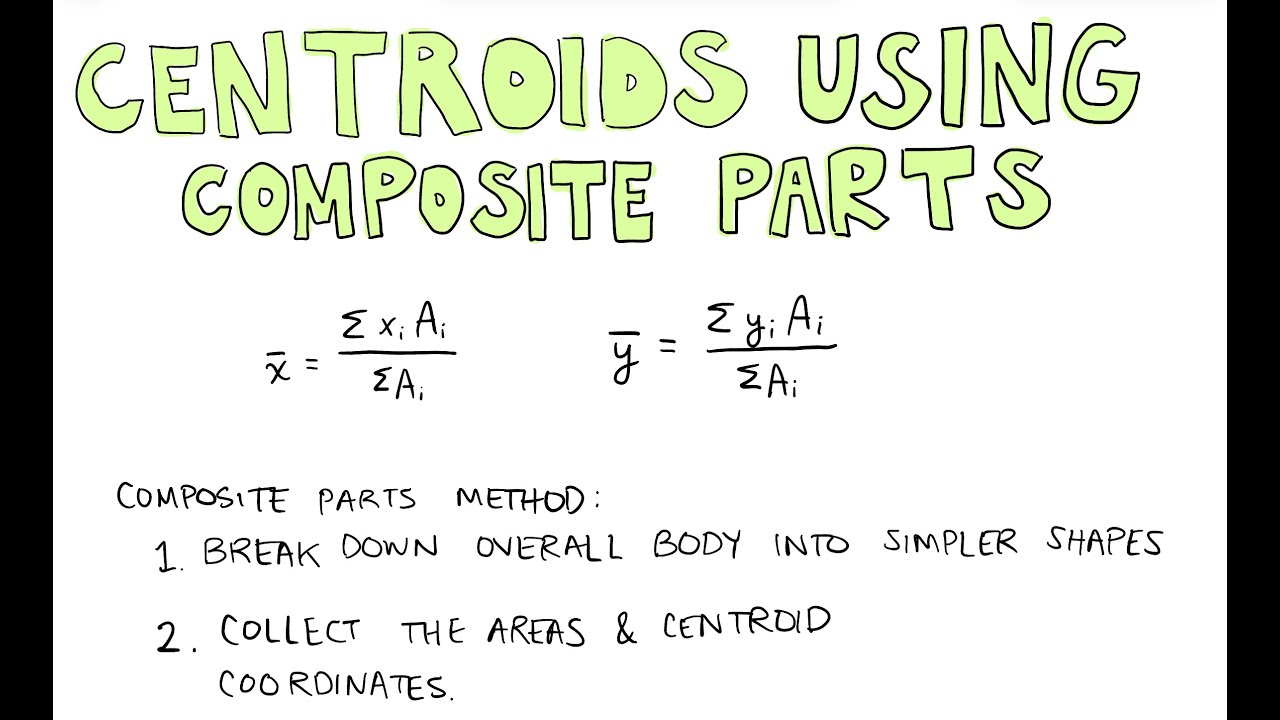 CENTROIDS USING
COMPOSITE PARTS
x̄ = Σ xᵢ Aᵢ / Σ Aᵢ    ȳ = Σ yᵢ Aᵢ / Σ Aᵢ
COMPOSITE PARTS METHOD:
1. BREAK DOWN OVERALL BODY INTO SIMPLER SHAPES
2. COLLECT THE AREAS & CENTROID
COORDINATES.